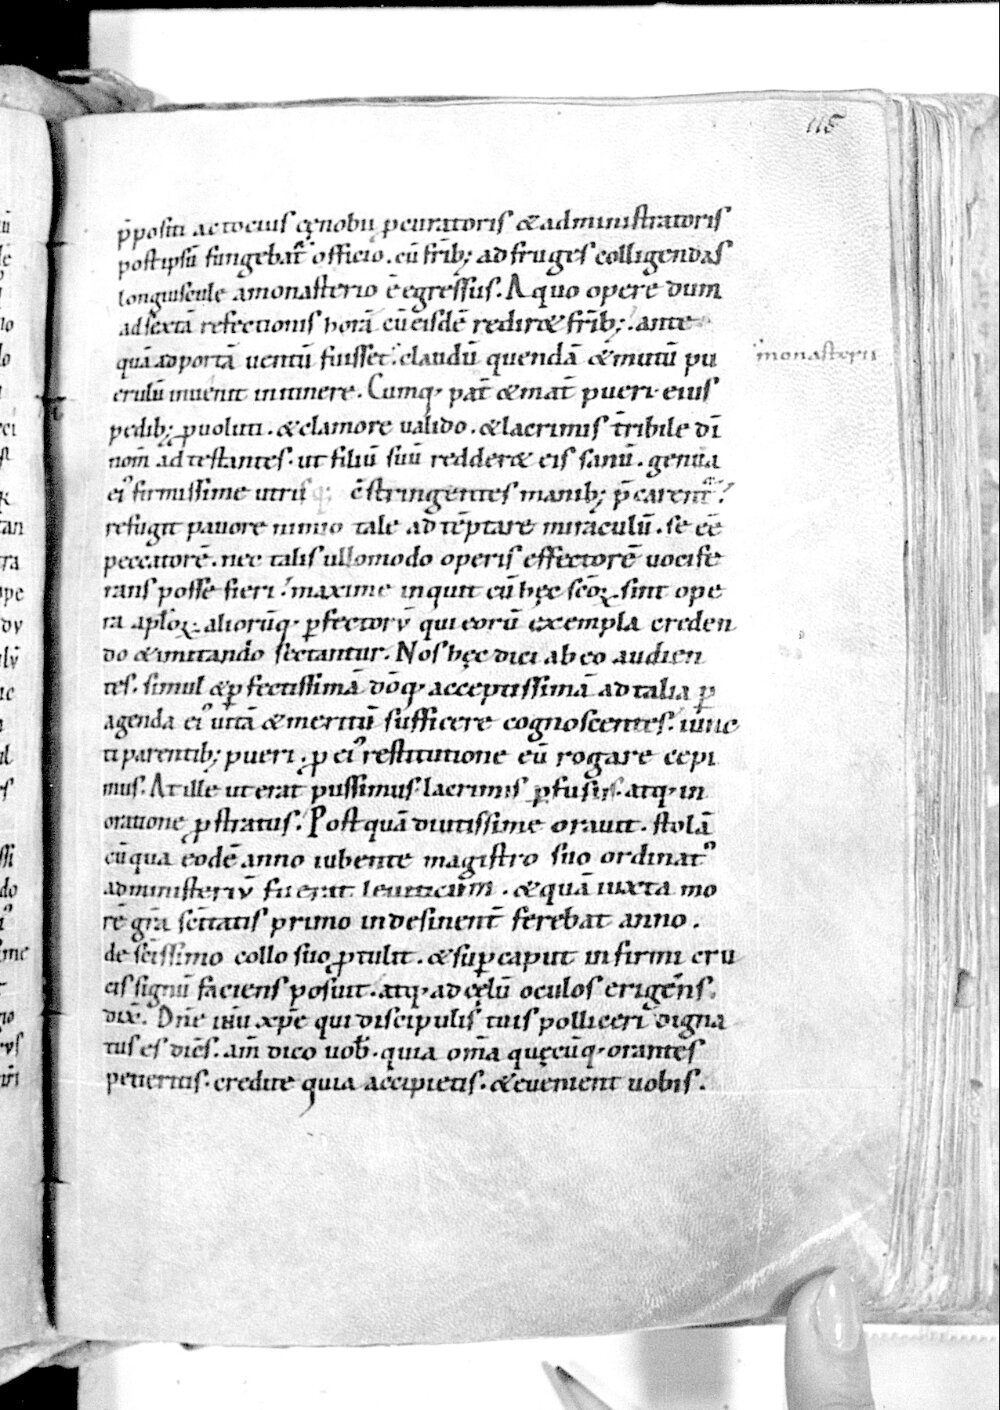 115
p̄positi ac tocius cęnobii ꝓcuratoris & administratoris
post ipsū fungebat᷑ officio. cū fr̄ib; ad fruges colligendas
longiuscule a monasterio ē egressus. A quo opere dum
ad sextā refectionis horā cū eisdē redir& fr̄ib;. ante
quā ad portā uentū fuisset. claudū quendā & mutū pu
monasterii
erulū inuenit in itinere. Cumq· pat̄ & mat̄ pueri· eius
pedib; ꝓuoluti. & clamore ualido. & lacrimis t̄ribile dī
nom̄ adtestantes. ut filiū suū redder& eis sanū. genua
ei᷒ firmissime utris ēstringentes manib; p̄carent᷑.
refugit pauore nimio tale ad tēptare miraculū. se eē
peccatorē. nec talis ullomodo operis effectorē uocife
rans posse fieri. maxime inquit cū hęc scōꝝ sint ope
ra aplōꝝ. aliorūq· ꝑfectorū qui eorū exempla creden
do & imitando sectantur. Nos hęc dici ab eo audien
tes. simul & ꝑfectissimā dōq· acceptissimā ad talia ꝑ
agenda ei᷒ uitā & meritū sufficere cognoscentes. iunc
ti parentib; pueri. ꝓ ei᷒ restitutione eū rogare cepi
mus. At ille ut erat piissimus. lacrimis ꝑfusus. atq· in
oratione ꝓstratus. Postquā diutissime orauit. stolā
cū qua eodē anno iubente magistro suo ordinat᷒
ad ministeriū fuerat leuiticum. & quā iuxta mo
rē gr̄a sc̄itatis primo indesinent̄ ferebat anno.
de sc̄issimo collo suo ꝓtulit. & suꝑ caput infirmi cru
cis signū faciens posuit. atq· ad cęlū oculos erigens.
dix̄. Dn̄e ihū xp̄e qui discipulis tuis polliceri digna
tus es dicēs. am̄ dico uob̄. quia om̄a quęcūq· orantes
petieritis. credite quia accipietis. & euenient uobis.